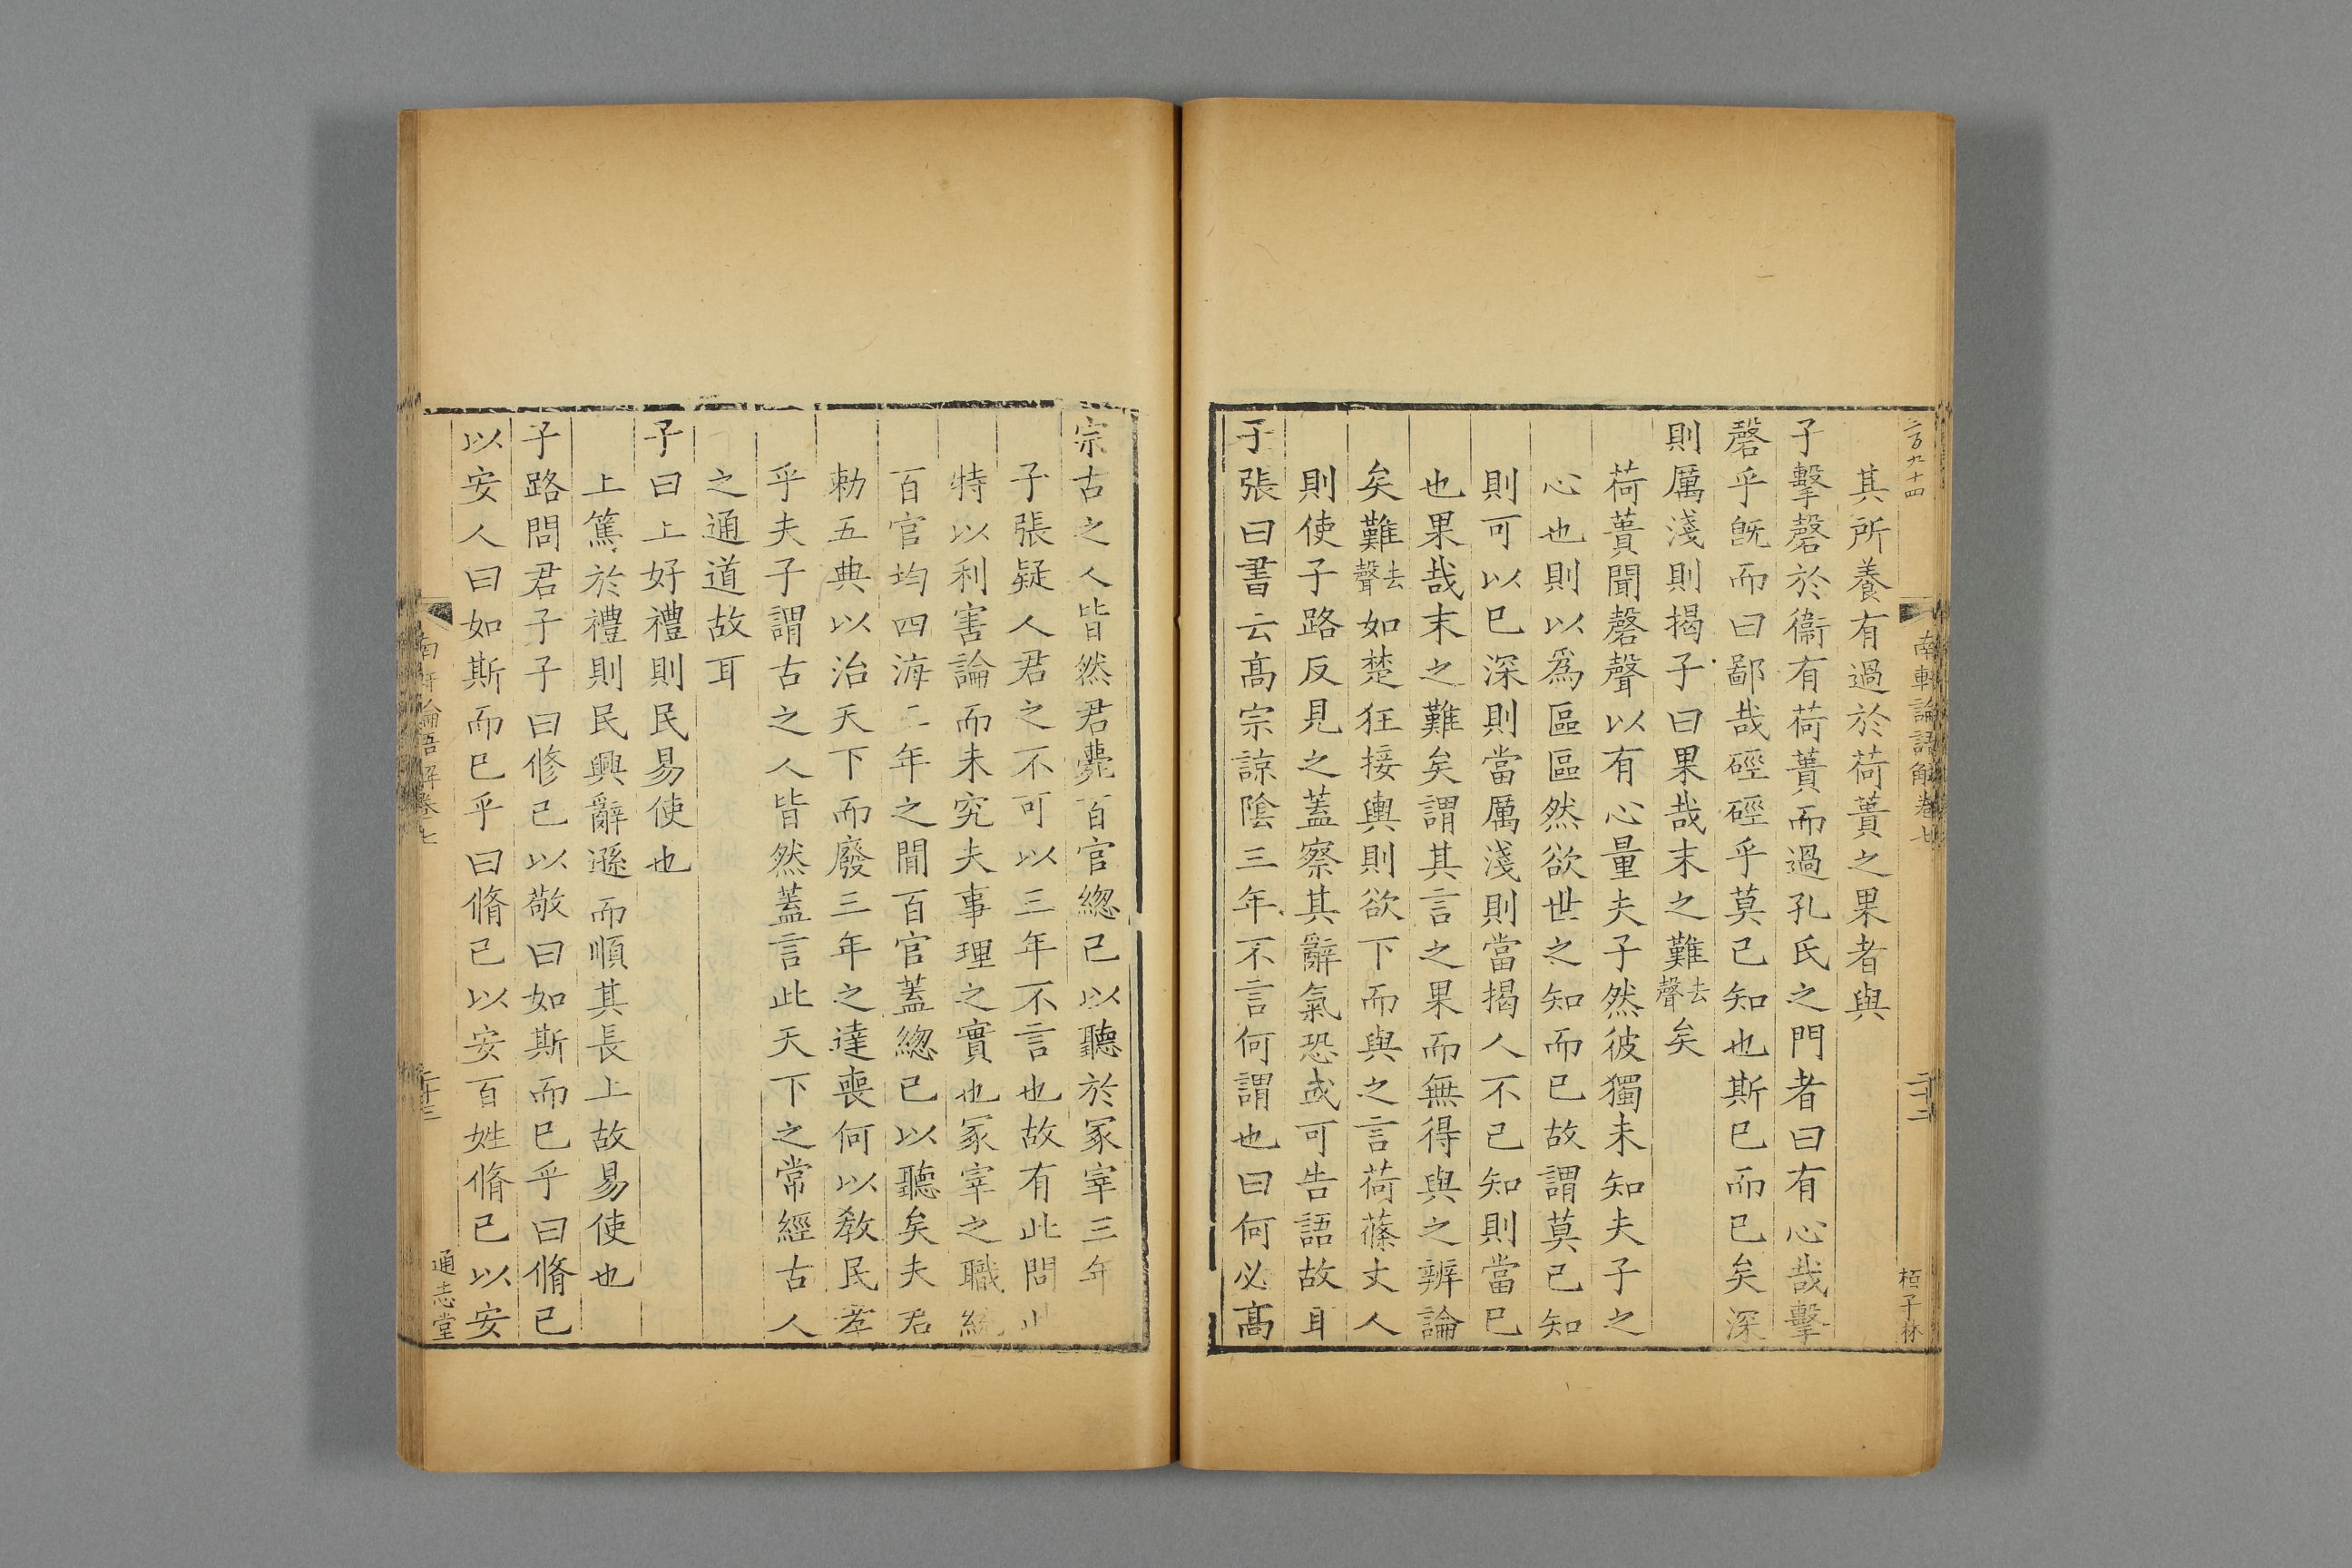 二百九十四
南軒論語解卷七
二十二
栢子林
其所養有過於荷蕢之果者與
子擊磬於衞有荷蕢而過孔氏之門者曰有心哉擊
磬乎旣而曰鄙哉硜硜乎莫己知也斯已而已矣深
則厲淺則揭子曰果哉末之難去聲矣
荷蕢聞磬聲以有心量夫子然彼獨未知夫子之
心也則以爲區區然欲世之知而已故謂莫己知
則可以已深則當厲淺則當揭人不己知則當已
也果哉末之難矣謂其言之果而無得與之辨論
矣難去聲如楚狂接輿則欲下而與之言荷蓧丈人
則使子路反見之蓋察其辭氣恐或可告語故耳
子張曰書云髙宗諒陰三年不言何謂也曰何必髙
宗古之人皆然君薨百官緫己以聽於冢宰三年
子張疑人君之不可以三年不言也故有此問止
特以利害論而未究夫事理之實也冢宰之職統
百官均四海二年之閒百官蓋緫己以聽矣夫君
勑五典以治天下而廢三年之達喪何以教民孝
乎夫子謂古之人皆然蓋言此天下之常經古人
之通道故耳
子曰上好禮則民易使也
上篤於禮則民興辭遜而順其長上故易使也
子路問君子子曰修己以敬曰如斯而已乎曰脩己
以安人曰如斯而已乎曰脩己以安百姓脩己以安
南軒論語解卷七
二十三
通志堂